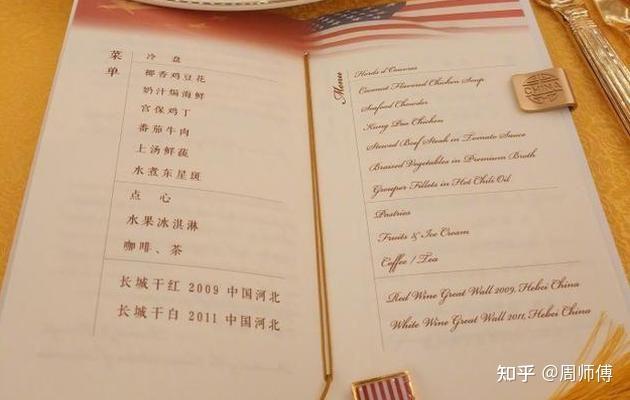 菜单
冷 盘
椰香鸡豆花
奶汁焗海鲜
宫保鸡丁
番茄牛肉
上汤鲜蔬
水煮东星斑
点 心
水果冰淇淋
咖啡、茶
长城干红 2009 中国河北
长城干白 2011 中国河北
Menu
Hords d'Oeuvres
Coconut Flavored Chicken Soup
Seafood Chowder
Kung Pao Chicken
Stewed Beef Steak in Tomato Sauce
Braised Vegetables in Premium Broth
Grouper Fillets in Hot Chili Oil
Pastries
Fruits & Ice Cream
Coffee / Tea
Red Wine Great Wall 2009, Hebei China
White Wine Great Wall 2011, Hebei China
知乎 @周师傅